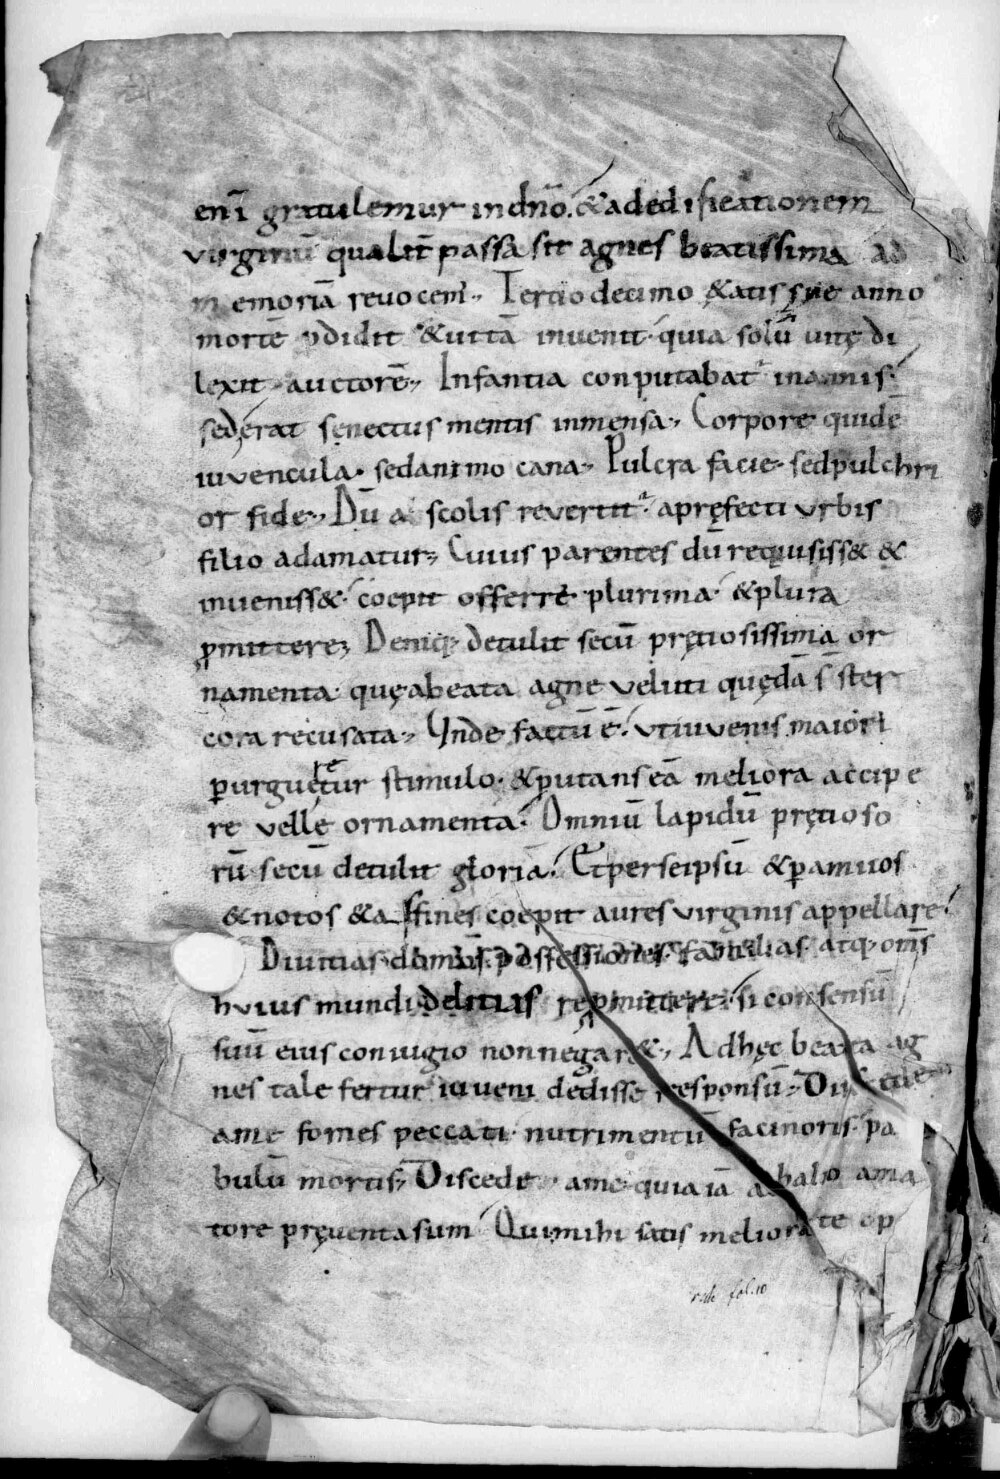 enī gratulemur in dn̄o. & ad edificationem
virginū qualit̄ passa sit agnes beatissima ad
memoriā revocem̄. Tertio decimo &atis suę anno
mortē ꝑdidit & vitā invenit. quia solū vitę di
lexit auctorē. Infantia conputabat᷑ in annis.
sed erat senectus mentis inmensa. Corpore quidē
iuvencula. sed animo cana. Pulcra facie. sed pulchri
or fide. Dū a scolis revertit᷑. a pręfecti urbis
filio adamatur. Cuius parentes dū requisiss& &
inveniss&. coepit offerre plurima. & plura
ꝓmittere. Deniq; detulit secū pręciosissima or
namenta. quę a beata agne veluti quędā s̄ ster
cora recusata. Unde factū ē. ut iuvenis maiori
ꝑurgueretur stimulo. & putans eā meliora accipe
re velle ornamenta. Omniū lapidū pręcioso
rū secū detulit gloriā. Et per seipsū & ꝑ amicos
& notos & affines coepit aures virginis appellare.
Divitias. domus. possessiones. familias atq; om̄s
huius mundi delitias repmittere. si consensū
suū eius coniugio non negar&. Ad hęc beata ag
nes tale fertur iuveni dedisse responsū. Discede
a me fomes peccati. nutrimentū facinoris. pa
bulū mortis. Discede a me. quia iā ab alio ama
tore pręventa sum. Qui mihi satis meliora te op
vide fol. 10